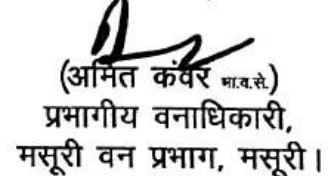 (अमित कंवर भा.व.से.)
प्रभागीय वनाधिकारी,
मसूरी वन प्रभाग, मसूरी।